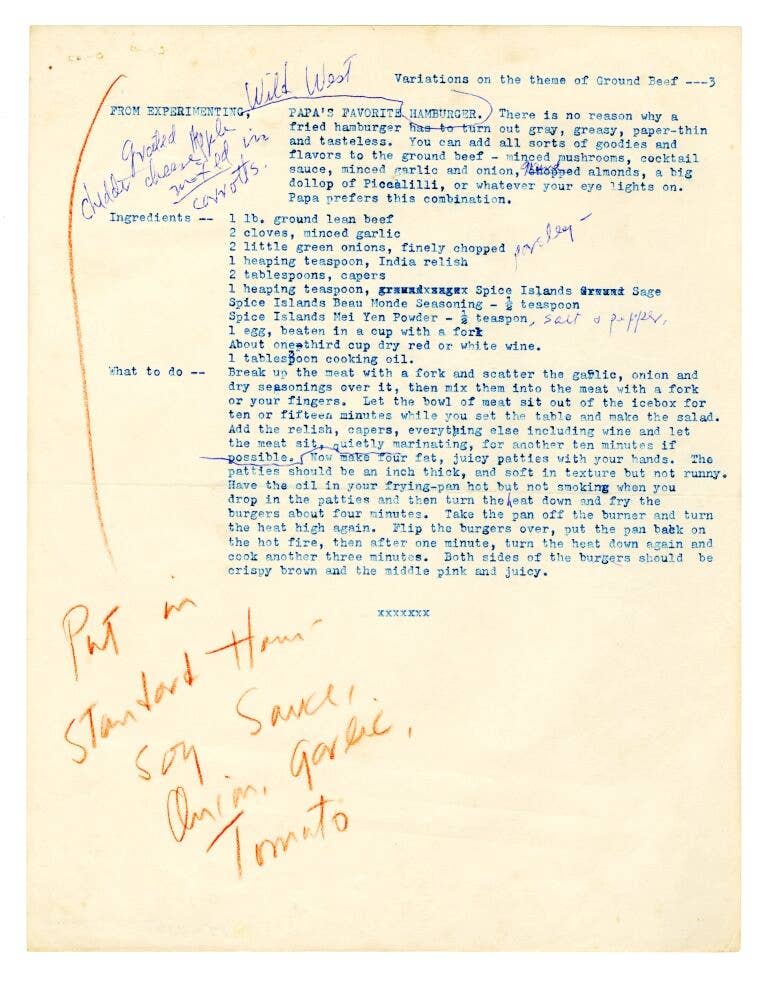 Variations on the theme of Ground Beef ---3
Wild West
FROM EXPERIMENTING, PAPA'S FAVORITE HAMBURGER. There is no reason why a
fried hamburger has to turn out gray, greasy, paper-thin
and tasteless. You can add all sorts of goodies and
flavors to the ground beef - minced mushrooms, cocktail
sauce, minced garlic and onion, chopped almonds, a big
dollop of Piccalilli, or whatever your eye lights on.
Papa prefers this combination.
grated Apple
cheddar cheese
mixed in
carrotts.
Ingredients -- 1 lb. ground lean beef
2 cloves, minced garlic
2 little green onions, finely chopped parsley -
1 heaping teaspoon, India relish
2 tablespoons, capers
1 heaping teaspoon, Spice Islands Ground Sage
Spice Islands Beau Monde Seasoning - ½ teaspoon
Spice Islands Mei Yen Powder - ½ teaspon, salt & pepper,
1 egg, beaten in a cup with a fork
About one-third cup dry red or white wine.
1 tablespoon cooking oil.
What to do -- Break up the meat with a fork and scatter the garlic, onion and
dry seasonings over it, then mix them into the meat with a fork
or your fingers. Let the bowl of meat sit out of the icebox for
ten or fifteen minutes while you set the table and make the salad.
Add the relish, capers, everything else including wine and let
the meat sit, quietly marinating, for another ten minutes if
possible. Now make four fat, juicy patties with your hands. The
patties should be an inch thick, and soft in texture but not runny.
Have the oil in your frying-pan hot but not smoking when you
drop in the patties and then turn the heat down and fry the
burgers about four minutes. Take the pan off the burner and turn
the heat high again. Flip the burgers over, put the pan back on
the hot fire, then after one minute, turn the heat down again and
cook another three minutes. Both sides of the burgers should be
crispy brown and the middle pink and juicy.
xxxxxxx
Put in
Standard Ham-
Soy Sauce,
Onion, garlic,
Tomato